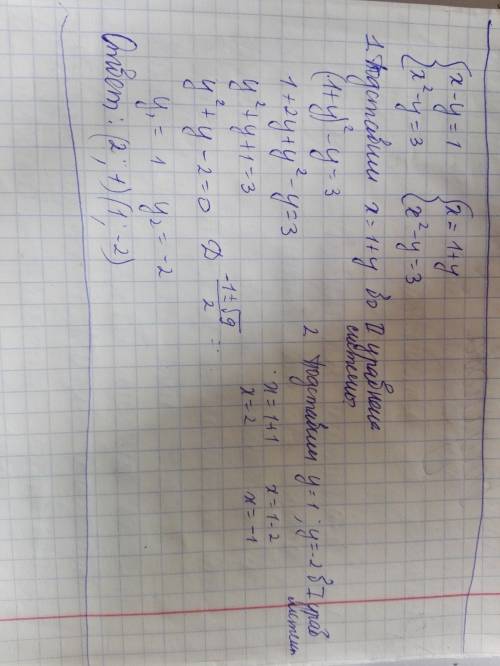 {x - y = 1 {x = 1+y
{x² - y = 3 {x² - y = 3
1. Подставим x = 1+y во II уравнение
системы
(1+y)² - y = 3
1 + 2y + y² - y = 3
y² + y + 1 = 3
y² + y - 2 = 0 D -1±√9/2 =
y₁ = 1 y₂ = -2
2 Подставим y = 1; y = -2 в I урав
системы
x = 1+1 x = 1-2
x = 2 x = -1
Ответ: (2; 1) (1; -2)